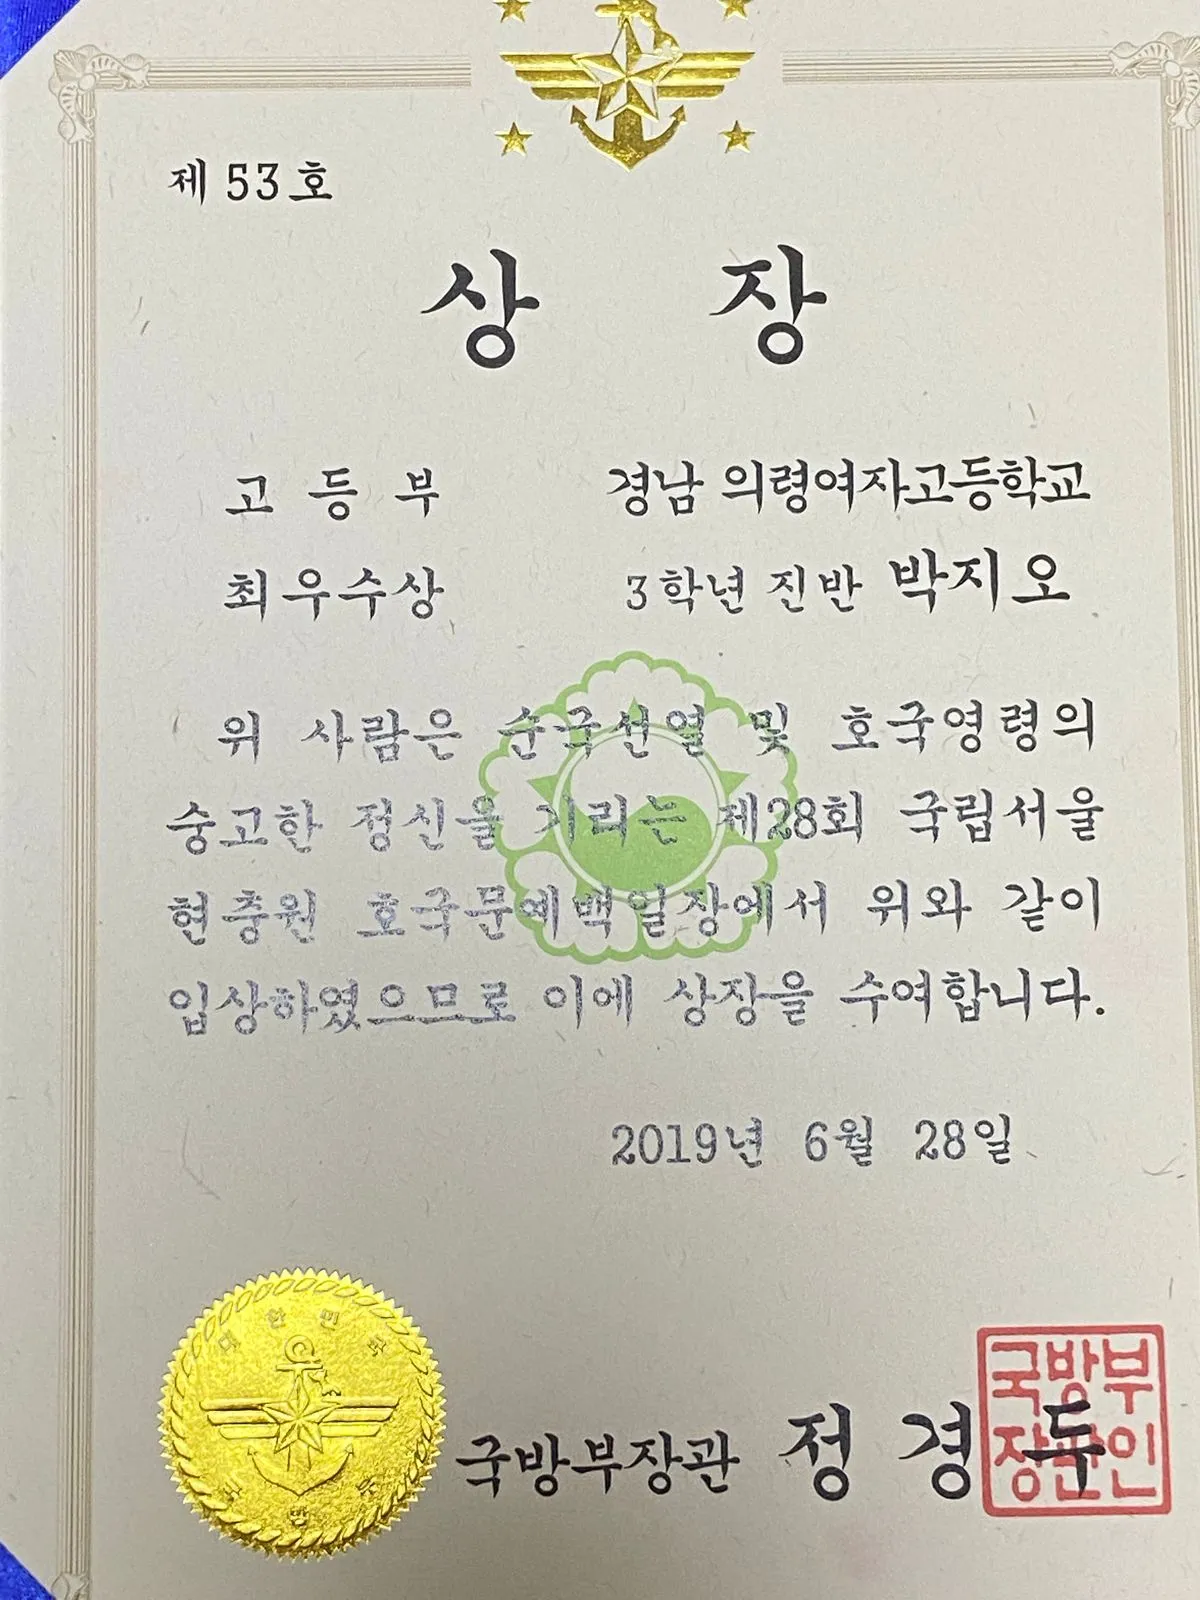 제 53 호
상 장
고 등 부 경남 의령여자고등학교
최우수상 3학년 진반 박지오
위 사람은 순국선열 및 호국영령의
숭고한 정신을 기리는 제28회 국립서울
현충원 호국문예백일장에서 위와 같이
입상하였으므로 이에 상장을 수여합니다.
2019년 6월 28일
대한민국
국방부
국방부장관 정 경 두
국방부
장관인